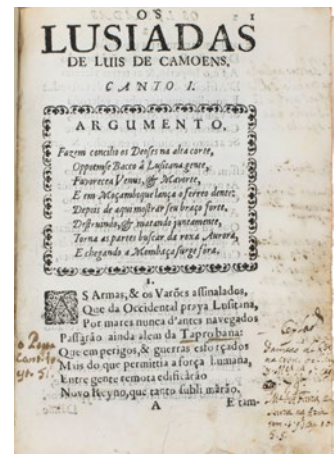 OS
LUSIADAS
DE LUIS DE CAMOENS.
CANTO I.
ARGUMENTO.
Fazem concilio os Deoses na alta corte,
Oppoemse Bacco à Lusitana gente,
Favorecea Venus, & Mavorte,
E em Moçambique lança o ferreo dente:
Depois de aqui mostrar seu braço forte,
Destruindo, & matando juntamente,
Torna as partes buscar da roxa Aurora,
E chegando a Mombaça surge fóra.
1.
AS Armas, & os Varões assinalados,
Que da Occidental praya Lusitana,
Por mares nunca d'antes navegados
Passárão ainda alem da Taprobana:
Que em perigos, & guerras esforçados
Mais do que permittia a força humana,
Entre gente remota edificárão
Novo Reyno, que tanto sublimárão.
A E tam-